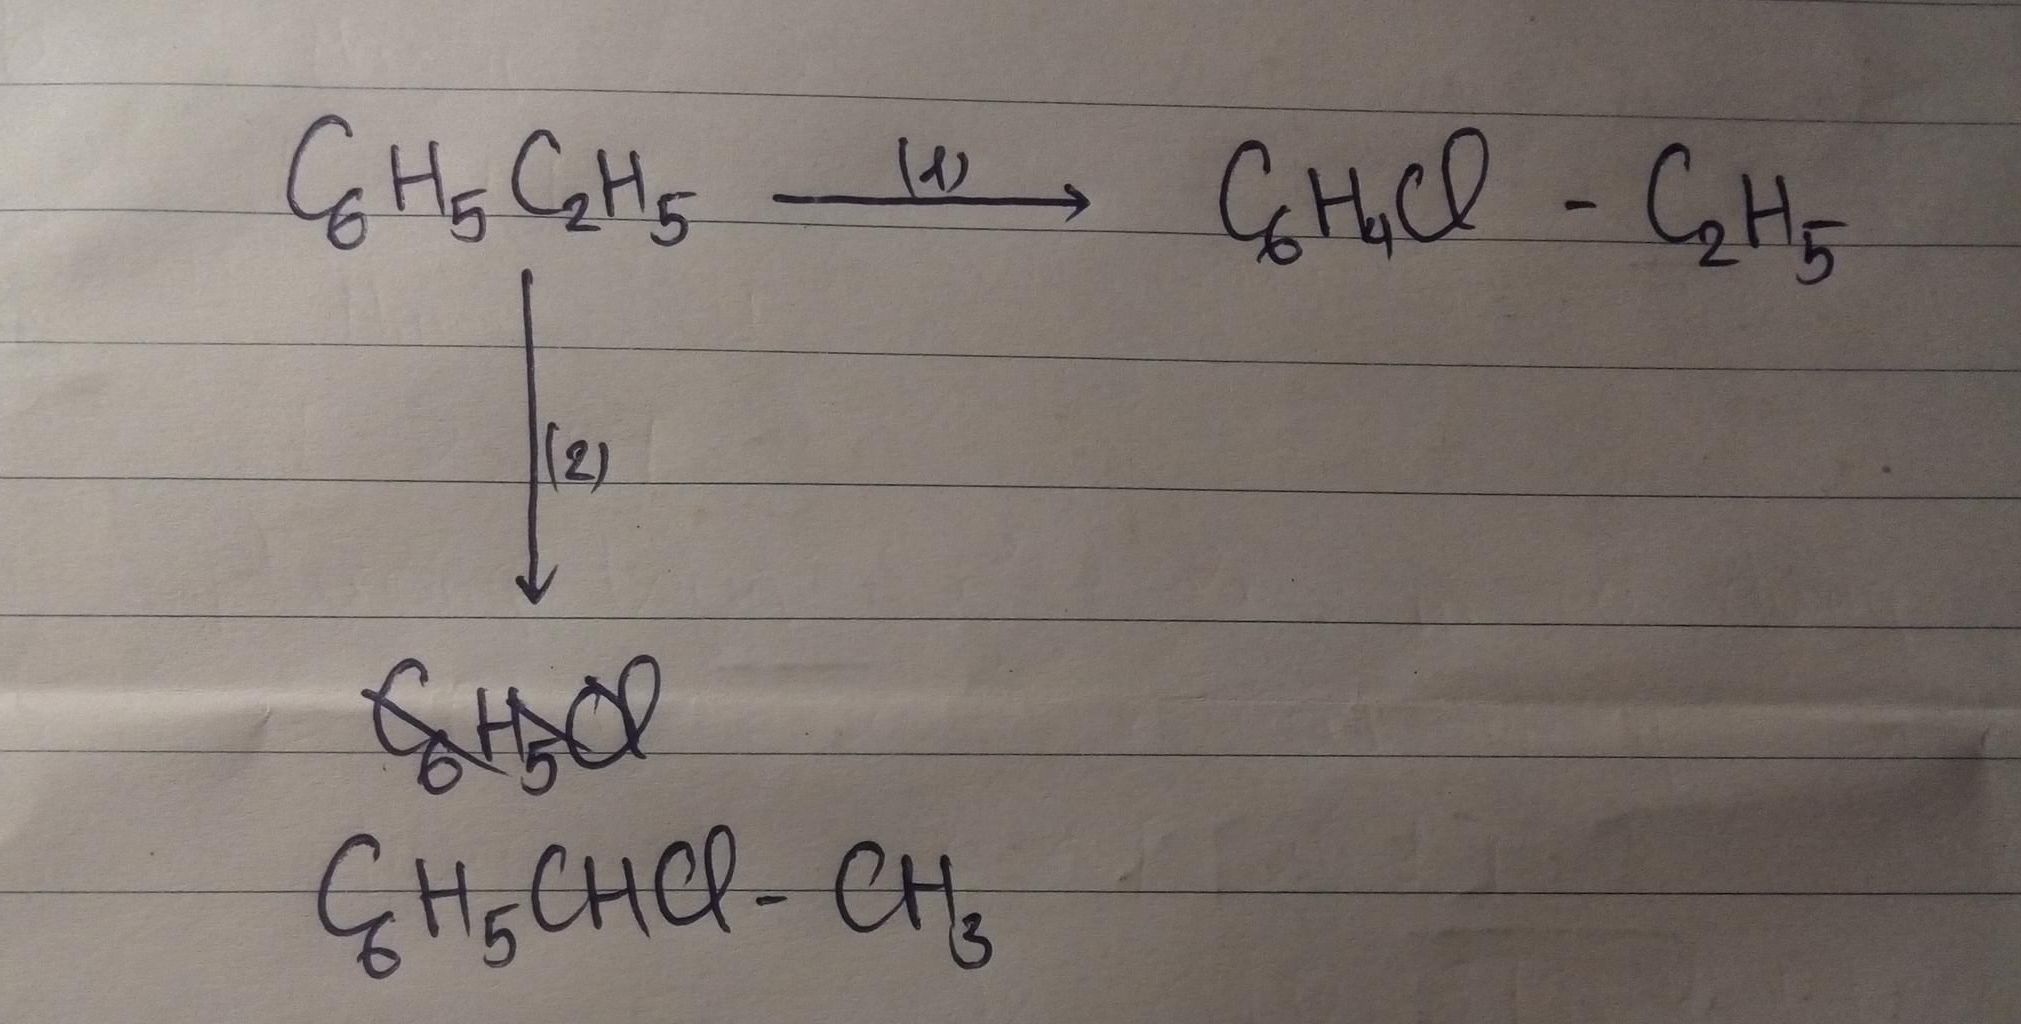 C₆H₅C₂H₅ —(1)→ C₆H₄Cl - C₂H₅
(2)
C₆H₅Cl
C₆H₅CHCl - CH₃